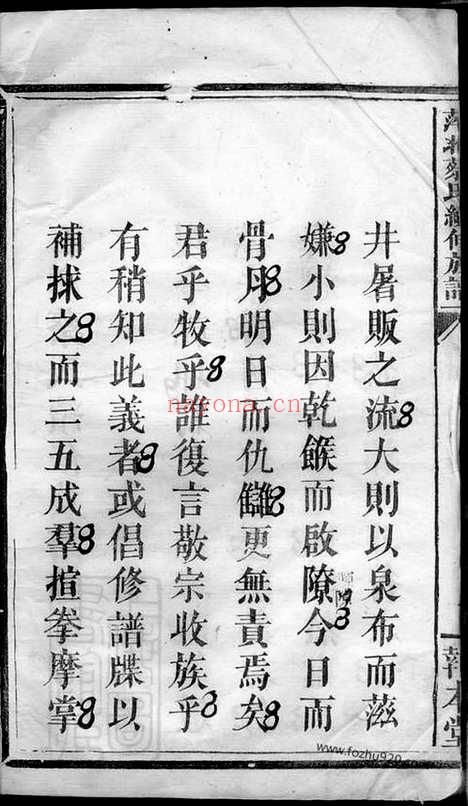 井屠販之流大則以泉布而滋
嫌小則因乾餱而啟隙今日而
骨月明日而仇讎更無責焉矣
君乎牧乎誰復言敬宗收族乎
有稍知此義者或倡修譜牒以
補捄之而三五成羣揎拳摩掌
氏續修族譜
報本堂
nayona.cn
www.fozhu920.com